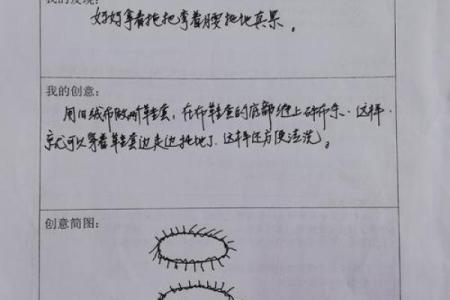 我的发现:
妈妈拿着拖把弯着腰拖地真累。
我的创意:
用旧绒布做两个鞋套,在布鞋套的底部缝上碎布条,这样,
就可以穿着鞋套边走边拖地了,这样还方便清洗。
创意简图: